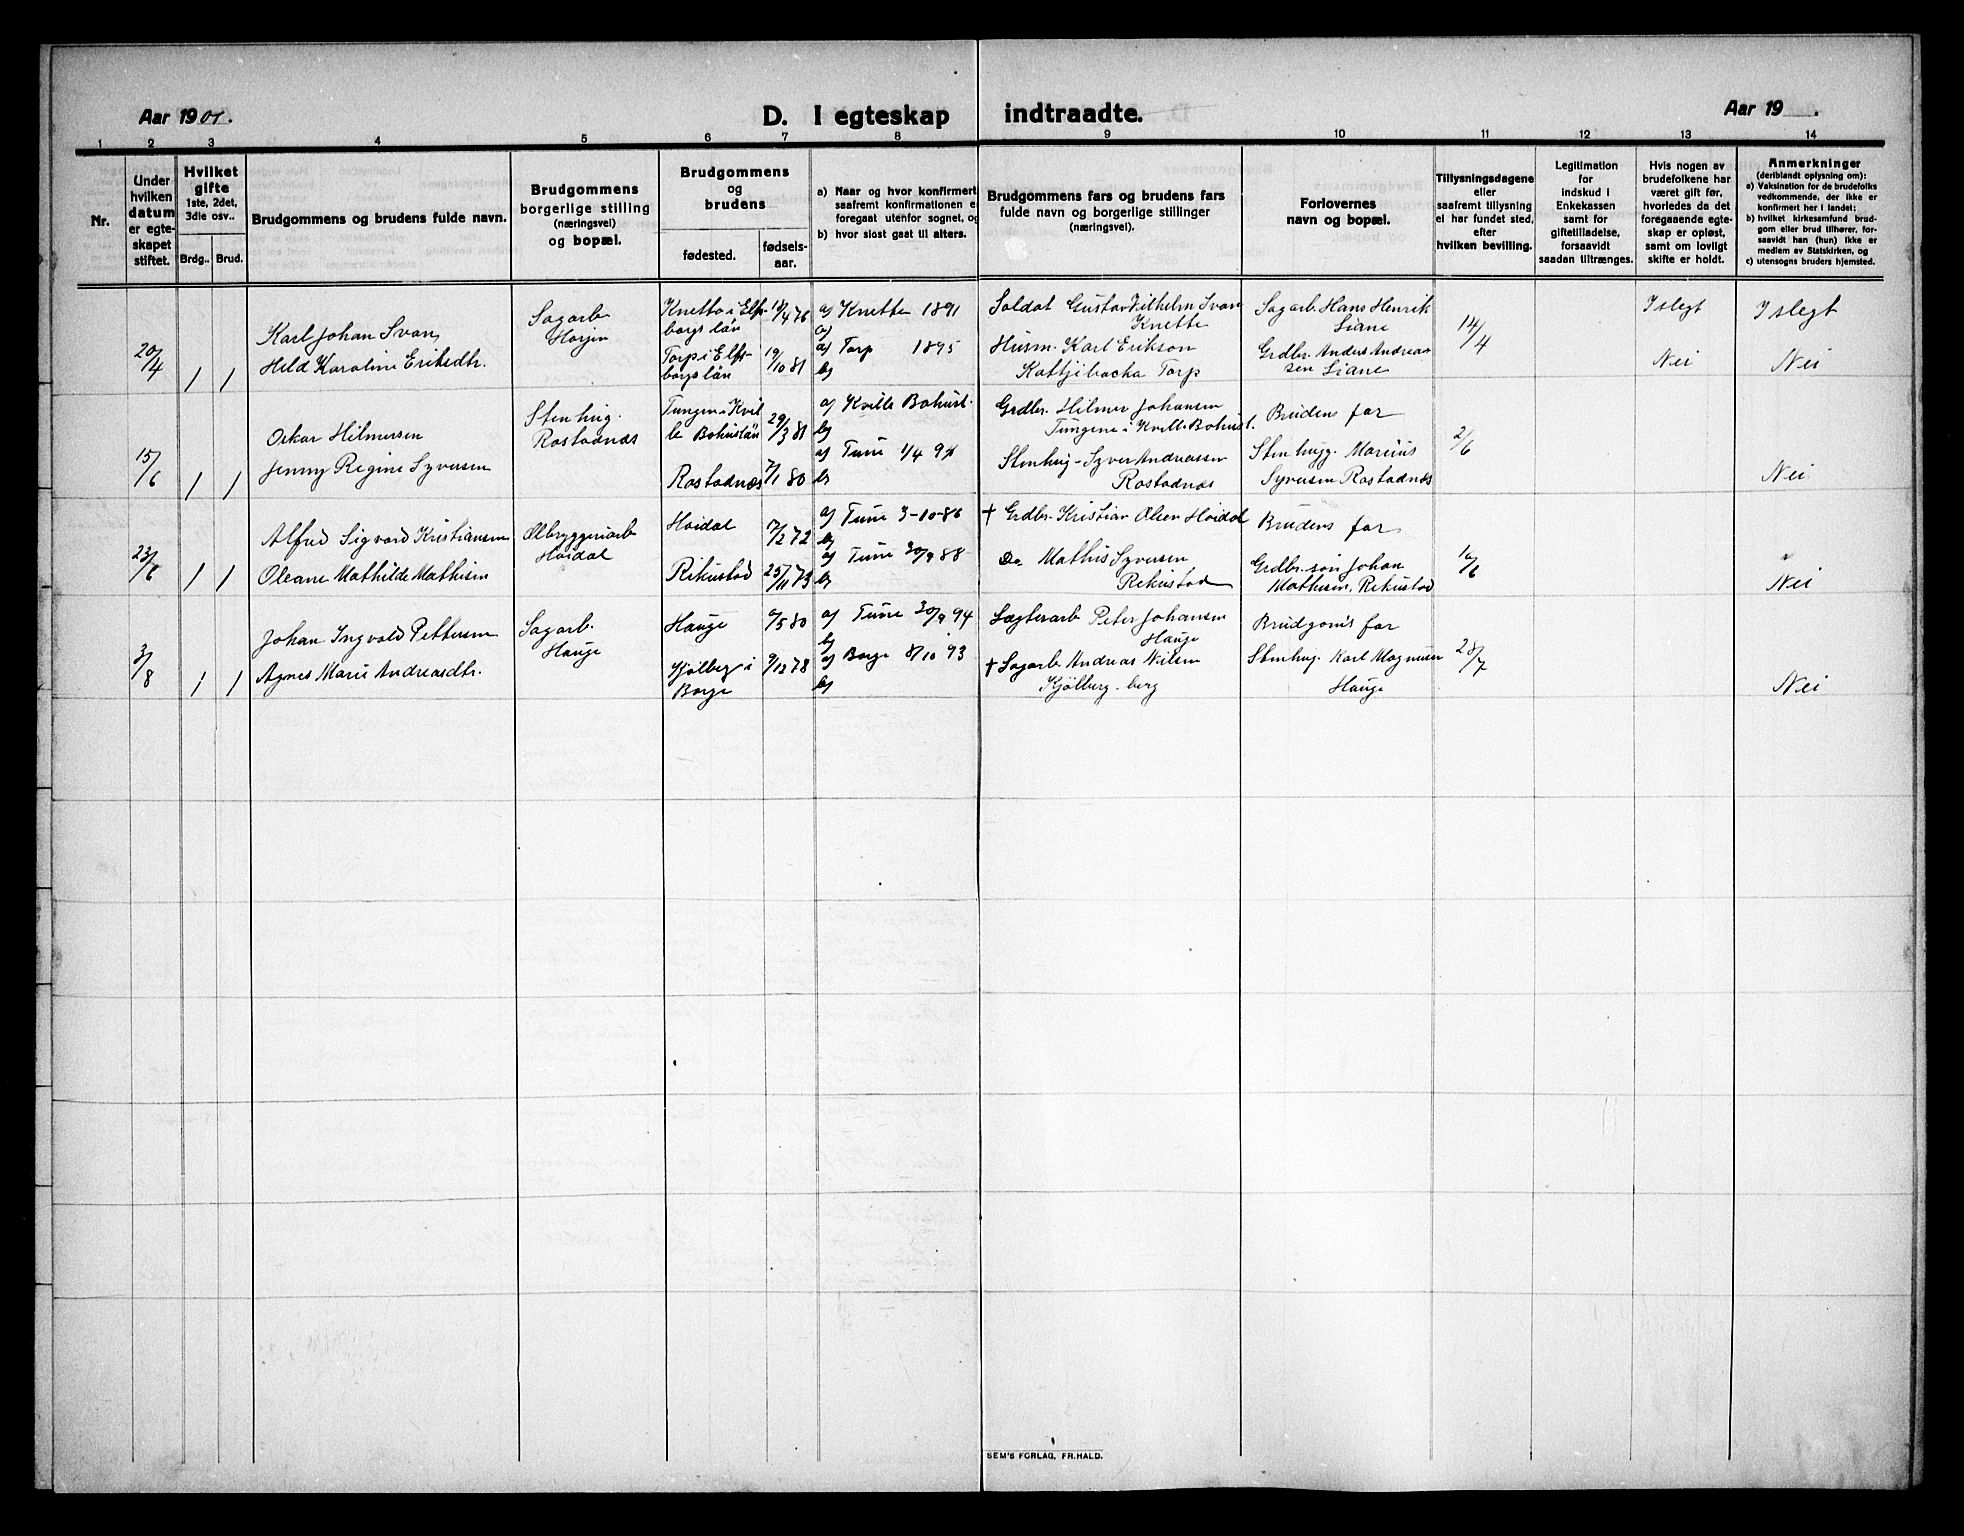 Aar 1901.
D. I egteskap indtraadte.
Aar 19 .
1 2 3 4 5 6 7 8 9 10 11 12 13 14
Nr.
Under
hvilken
datum
er egte-
skapet
stiftet.
Hvilket
gifte
1ste, 2det,
3die osv..
Brdg.. Brud.
Brudgommens og brudens fulde navn.
Brudgommens
borgerlige stilling
(næringsvei)
og bopæl.
Brudgommens
og
brudens
fødested.
fødsels-
aar.
a) Naar og hvor konfirmert
saafremt konfirmationen e
foregaat utenfor sognet, og
b) hvor sidst gaat til alters.
Brudgommens fars og brudens fars
fulde navn og borgerlige stillinger
(næringsvei).
Forlovernes
navn og bopæl.
Tillysningsdagene
eller
saafremt tillysning
ei har fundet sted,
efter
hvilken bevilling.
Legitimation
for
indskud i
Enkekassen
samt for
giftetilladelse,
forsaavidt
saadan tiltrænges.
Hvis nogen av
brudefolkene har
været gift før,
hvorledes da det
foregaaende egte-
skap er opløst,
samt om lovligt
skifte er holdt.
Anmerkninger
(deriblandt oplysning om):
a) Vaksination for de brudefolks
vedkommende, der ikke er
konfirmert her i landet;
b) hvilket kirkesamfund brud-
gom eller brud tilhører, for-
saavidt han (hun) ikke er
medlem av Statskirken, og
c) utensogns bruders hjemsted.
20/4
1 1
Karl Johan Svan,
Hild Karoline Eriksdtr.
Sagarb
Horjen
Knetta i Elfs-
borgs län
18/4 76
Torp i Elfs-
borgs län
19/10 81
a) Knette 1891
b)
a) Torp 1895
b)
Soldat Gustav Vilhelm Svan
Knette
Husm. Karl Erikson
Kattjibacka Torp
Sagarb. Hans Henrik
Liane
Grdbr. Anders Andreas
sen Liane
14/4
I slegt
Nei
I slegt
Nei
15/6
1 1
Oskar Hilmersen
Jenny Regine Syversen
Stenhug.
Rostadnæs
Tungen i Kvil
le Bohuslän
29/3 81
Rostadnæs
7/1 80
a) Kville Bohusl.
b)
a) Tune 1/4 94
b)
Grdbr. Hilmer Johansen
Tungene i Kville Bohusl.
Stenhug- Syver Andreassen
Rostadnæs
Brudens far
Stenhugg. Marius
Syversen Rostadnæs
2/6
Nei
23/6
1 1
Alfred Sigvard Kristiansen
Oleane Mathilde Mathisen
Ølbryggeriarb
Hoidal
Hoidal
7/2 72
Rikustad
25/11 73
a) Tune 3-10-86
b)
a) Tune 30/9 88
b)
† Grdbr. Kristian Olsen Hoidal
Do Mathis Syversen
Rikustad
Brudens far
Grdbr. søn Johan
Mathisen, Rikustad
16/6
Nei
3/8
1 1
Johan Ingvald Pettersen
Agnes Marie Andreasdtr.
Sagarb.
Hauge
Hauge
9/5 80
Kjølberg i
Borge
9/12 78
a) Tune 30/9 94
b)
a) Borge 8/10 93
b)
Sægterarb Peter Johansen
Hauge
† Sagarb. Andreas Nilsen
Kjölberg-berg
Brudgom's far
Stenhug. Karl Magnusen
Hauge
28/7
Nei
SEM'S FORLAG, FR.HALD.